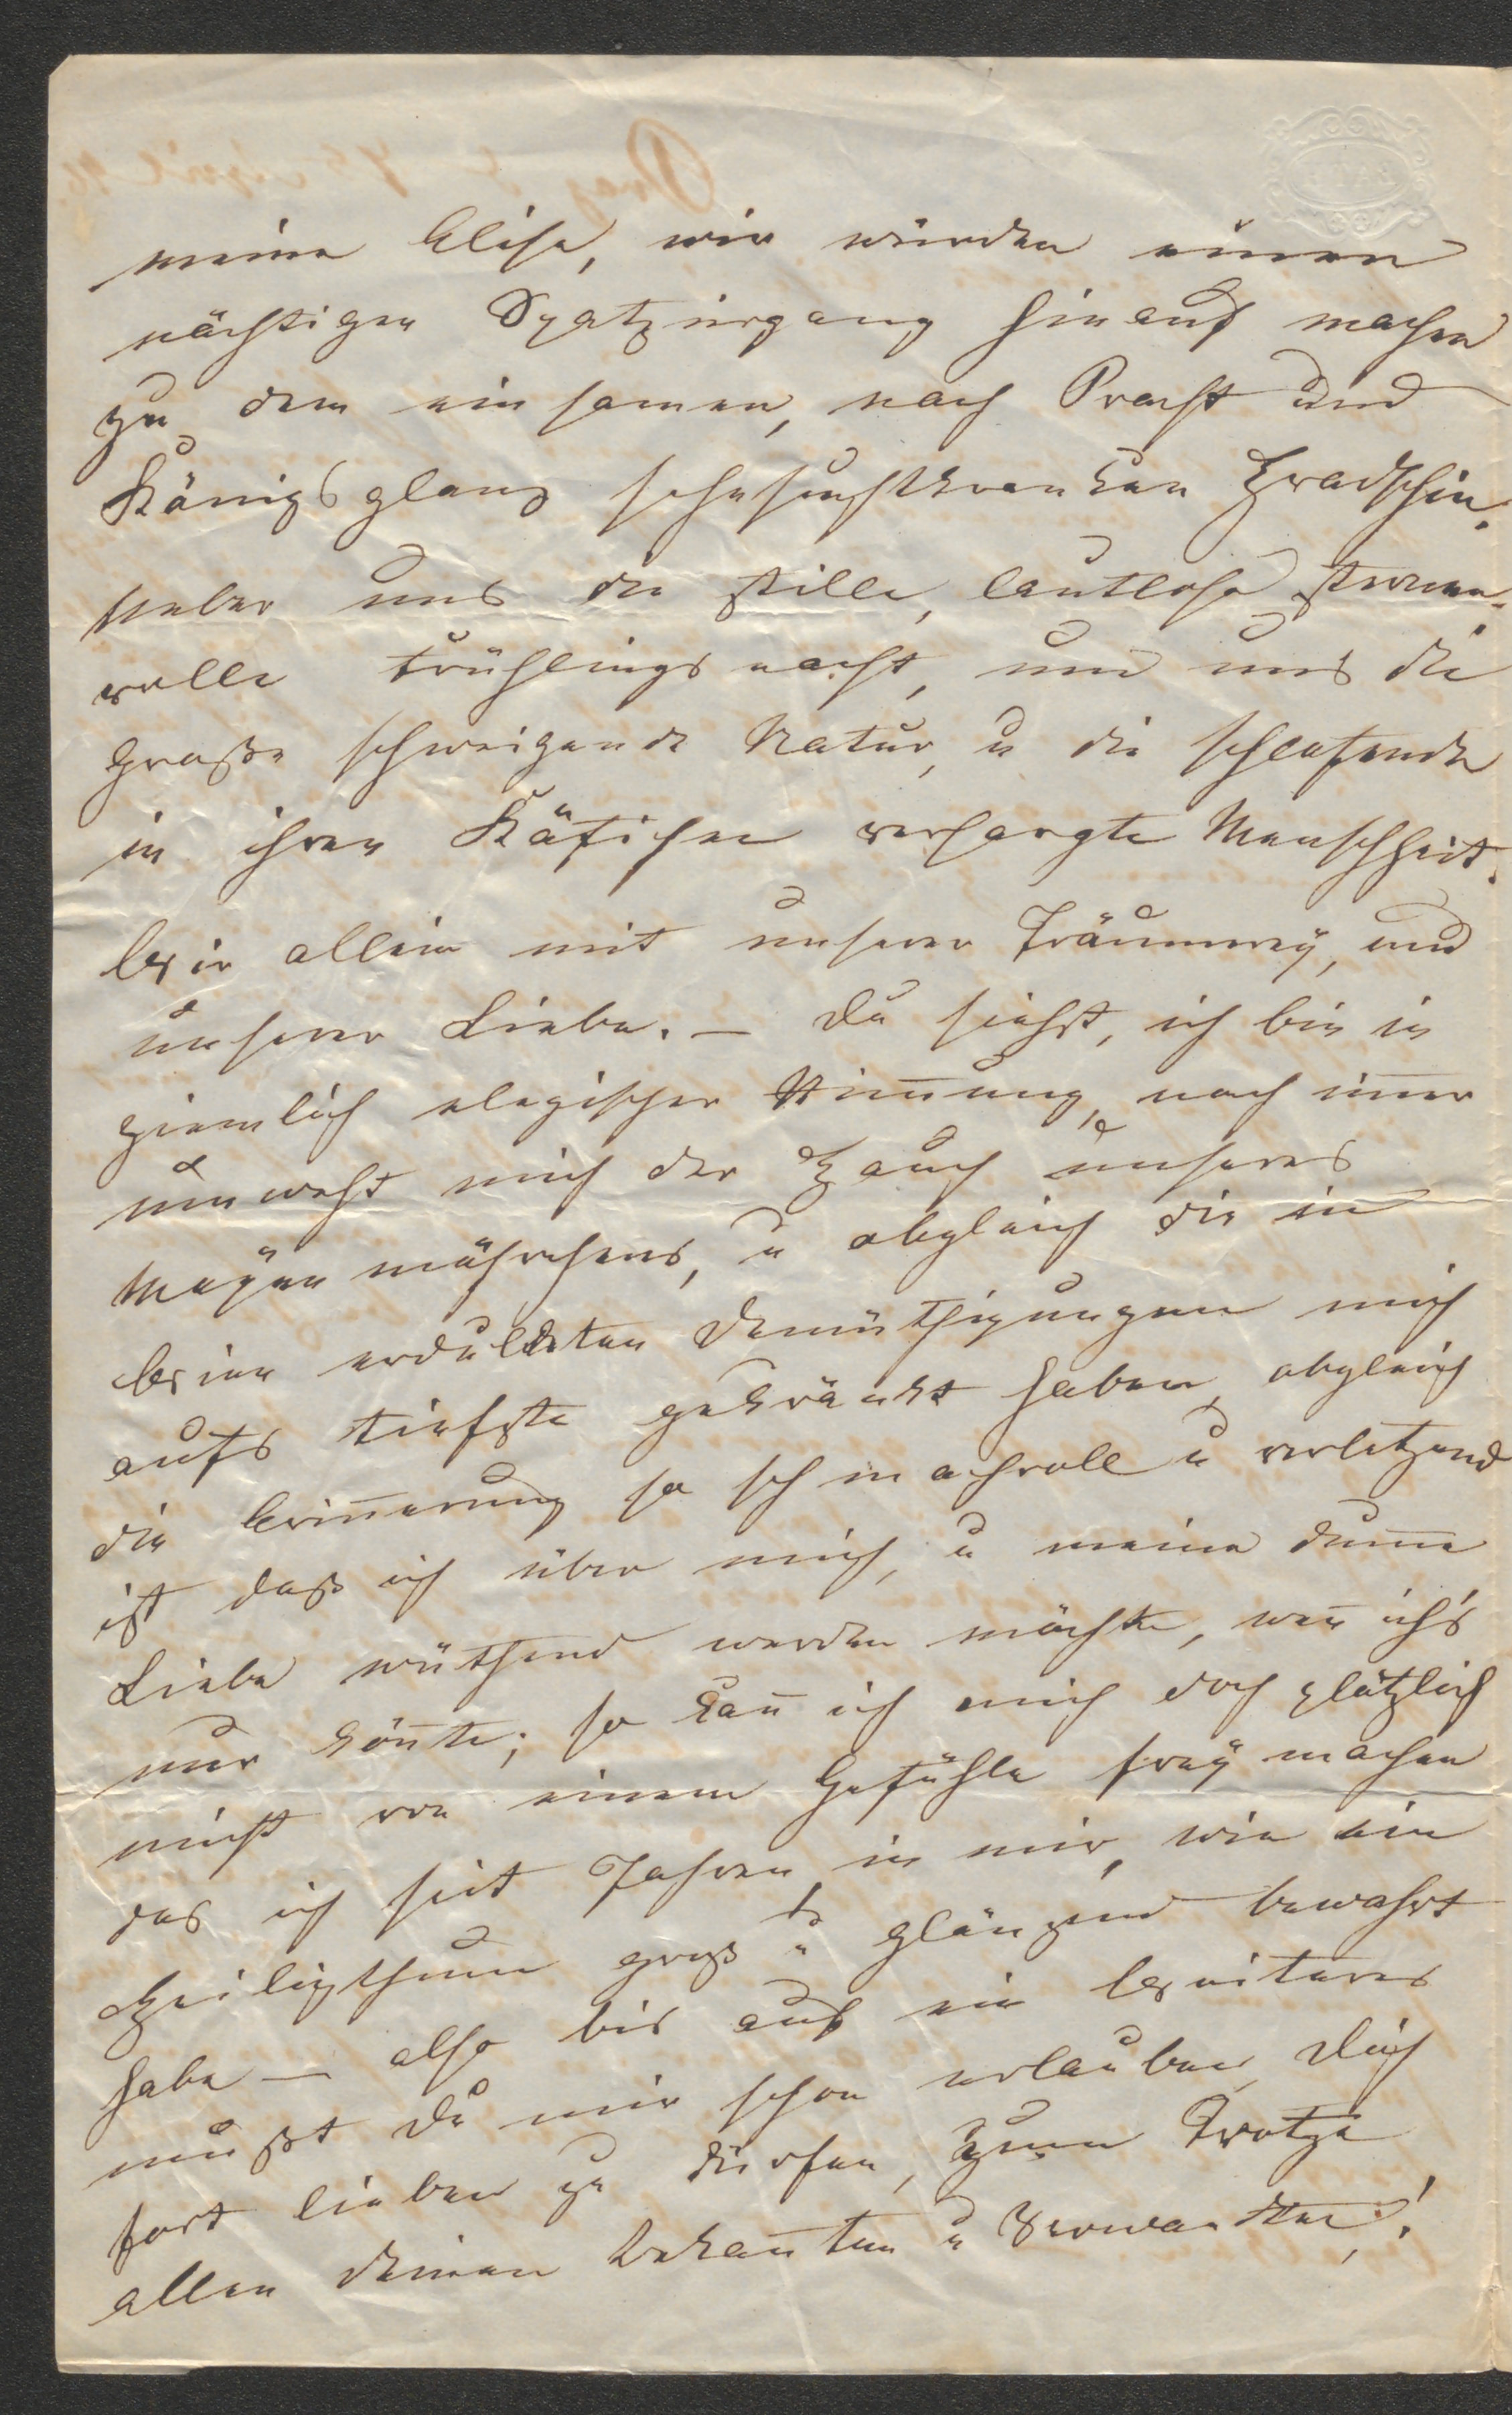 meine Elise, wir würden einen
nächtigen Spatziergang hinauf machen
zu dem einsamen, nach Pracht und
Königsglanz sehnsuchtkranken Hradschin.
Ueber uns die stille, lautlose sternen-
volle Frühlingsnacht, um uns die
große schweigende Natur, u die schlafende
in ihren Käfichen versorgte Menschheit.
Wir allein mit unserer Träumerey, und
unserer Liebe. — Du siehst, ich bin in
ziemlich elegischer Stim̅ung, noch im̅er
umweht mich der Hauch unseres
Mayenmährchens, u obgleich die in
Wien erduldeten Demüthigungen mich
aufs tiefste gekränkt haben, obgleich
die Erin̅erung so schmachvoll u verletzend
ist daß ich über mich, u meine dum̅e
Liebe wüthend werden möchte, wen̅ ich's
nur kön̅te; so kan̅ ich mich doch plötzlich
nicht von einem Gefühle frey machen
das ich seit Jahren in mir, wie ein
Heiligthum groß u glänzend bewahrt
habe — also bis auf ein Weiteres
mußt Du mir schon erlauben Dich
fort lieben zu dürfen, zum Trotze
allen Deinen Bekan̅ten u Verwandten!